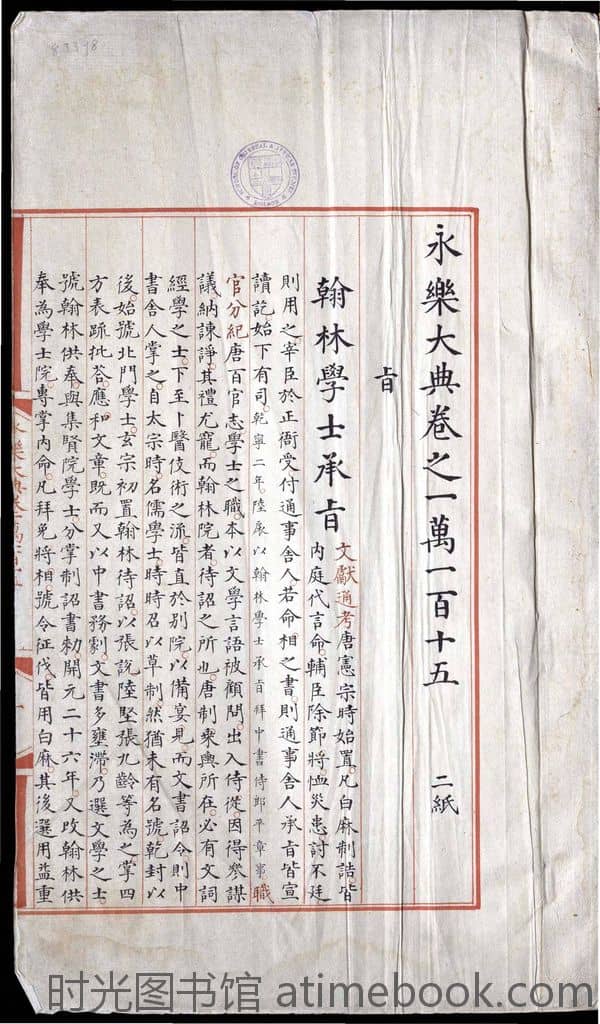 永樂大典卷之一萬一百十五 二紙
旨
翰林學士承旨
文獻通考唐憲宗時始置凡白麻制誥皆
內庭代言命輔臣除節將恤災患討不廷
則用之宰臣於正衙受付通事舍人若命相之書則通事舍人承旨皆宣
讀訖始下有司乾寧二年陸扆以翰林學士承旨拜中書侍郎平章事職
官分紀唐百官志學士之職本以文學言語被顧問出入侍從因得叅謀
議納諫諍其禮尤寵而翰林院者待詔之所也唐制乘輿所在必有文詞
經學之士下至卜醫伎術之流皆直於別院以備宴見而文書詔令則中
書舍人掌之自太宗時名儒學士時時召以草制然猶未有名號乾封以
後始號北門學士玄宗初置翰林待詔以張說陸堅張九齡等為之掌四
方表疏批荅應和文章既而又以中書務劇文書多壅滯乃選文學之士
號翰林供奉與集賢院學士分掌制詔書勑開元二十六年又改翰林供
奉為學士院專掌內命凡拜免將相號令征伐皆用白麻其後選用益重
时光图书馆 atimebook.com